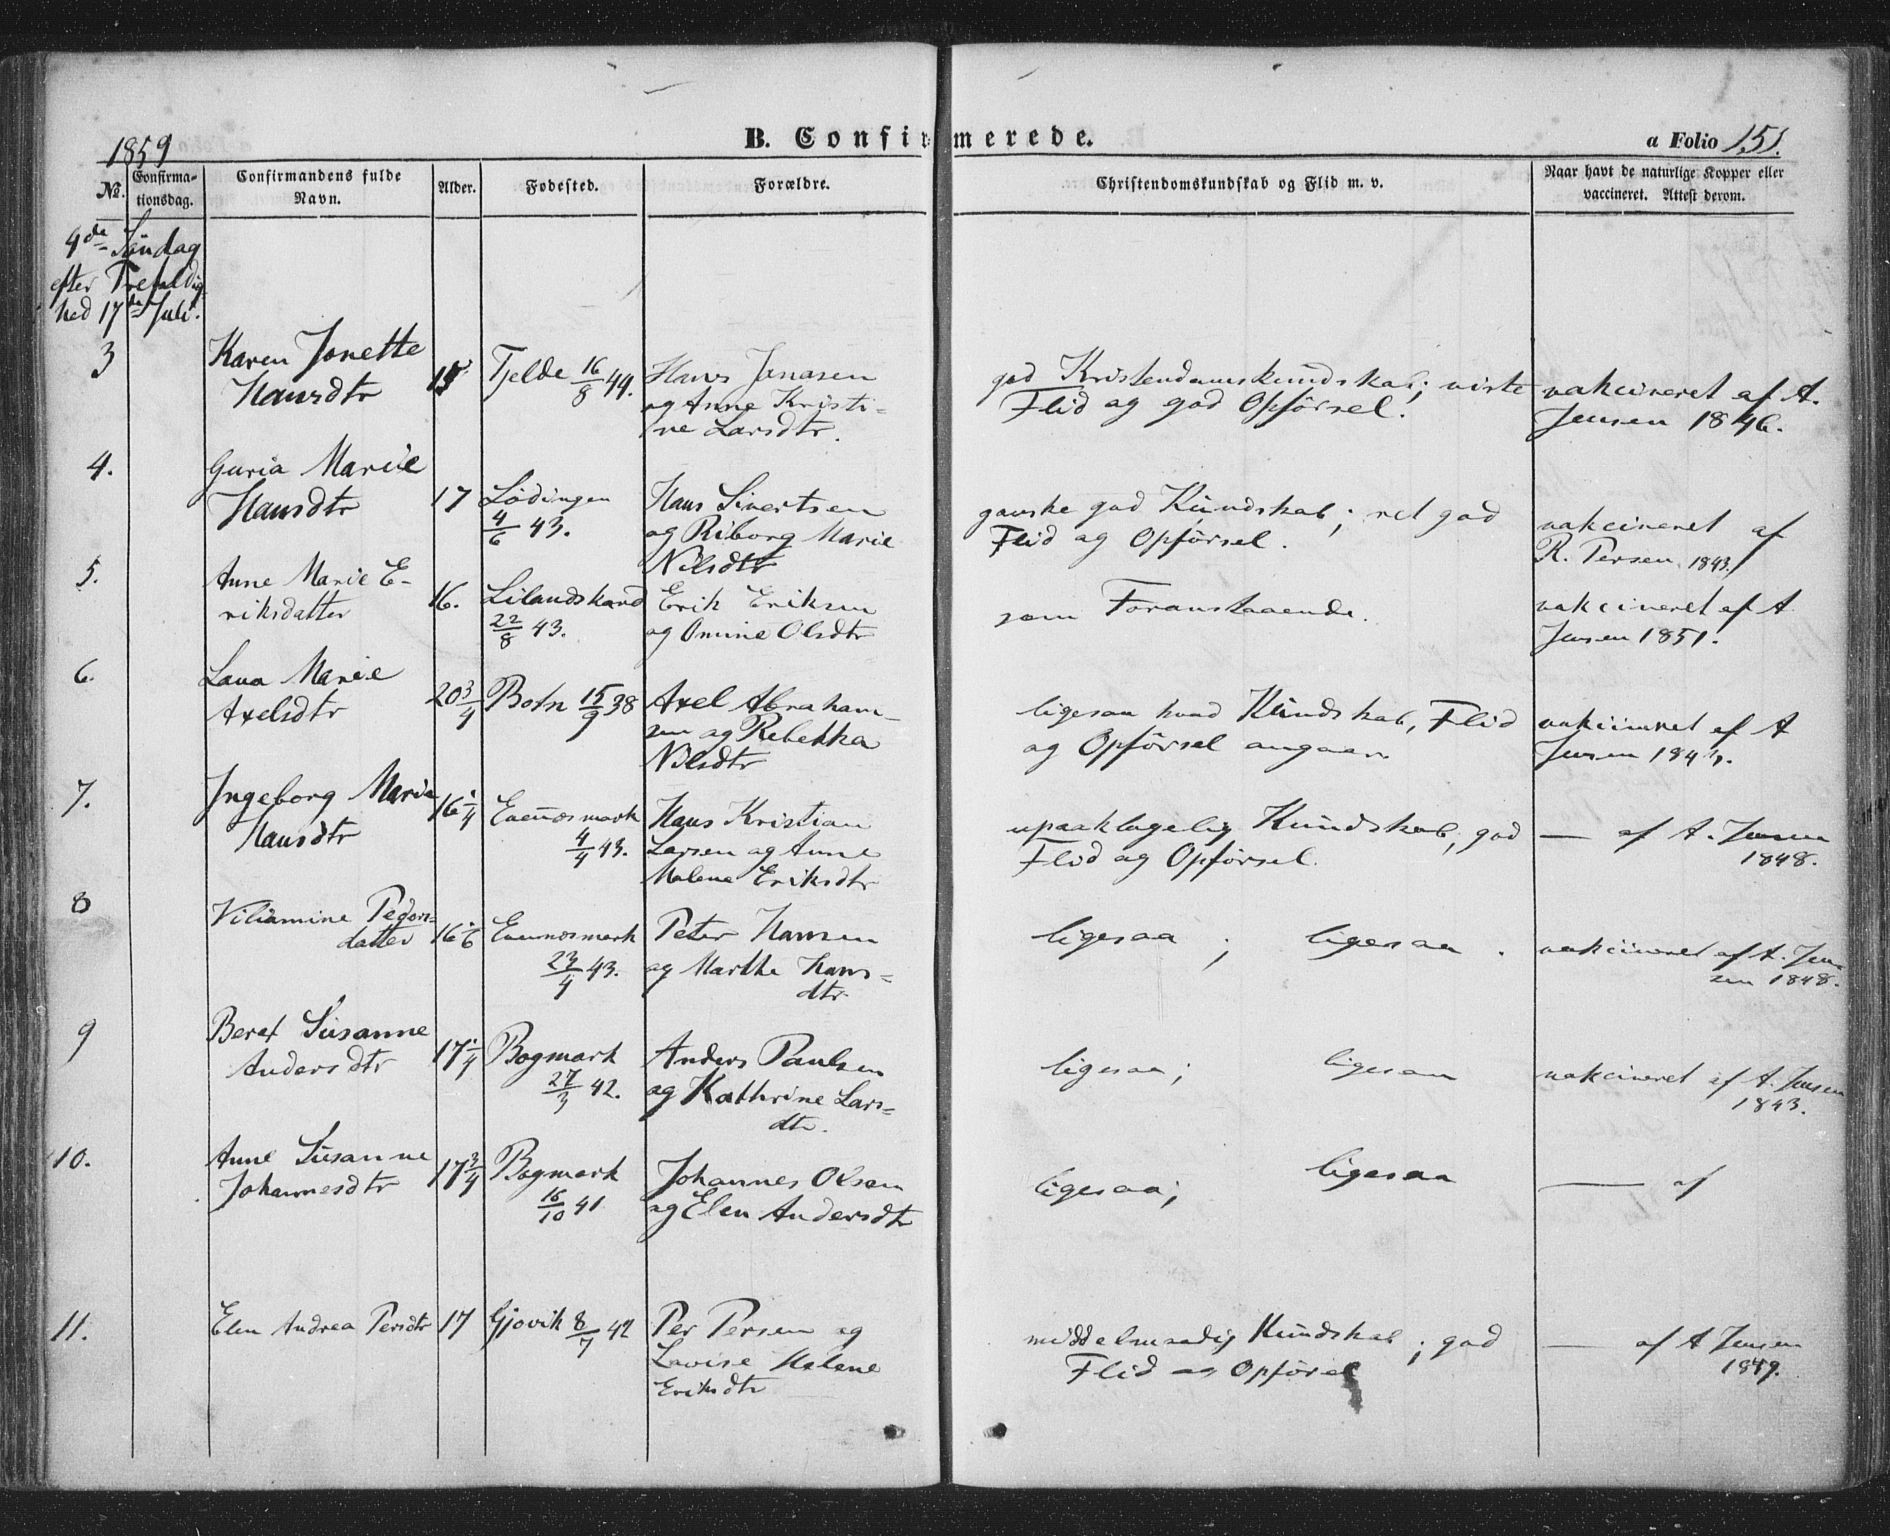 1859
B. Confirmerede.
a Folio 151.
No.
Confirmationsdag.
Confirmandens fulde Navn.
Alder.
Fødested.
Forældre.
Christendomskundskab og Flid m. v.
Naar havt de naturlige Kopper eller vaccineret. Attest derom.
4de Søndag
efter Trefoldig
hed 17de Juli.
3 Karen Jonette Hansdtr 15 Tjelde 16/8 44. Hans Jonasen
og Anne Kristi-
ne Larsdtr.
god Kristendomskundskab; viste
Flid og god Opförsel.
vakcineret af A.
Jensen 1846.
4. Guria Marie Hansdtr 17 Lødingen
4/6 43.
Hans Sivertsen
og Riborg Marie
Nilsdtr
ganske god Kundskab; ret god
Flid og Opförsel.
vakcineret af
R. Persen 1843.
5. Anne Marie E-
riksdatter
16. Lilandskard
22/8 43.
Erik Eriksen
og Omine Olsdtr
som Foranstaaende.
vakcineret af A
Jensen 1851.
6. Lava Marie
Axelsdtr
20 3/4 Botn 15/9 38 Axel Abraham-
sen og Rebekka
Nilsdtr
ligesaa hvad Kundskab, Flid
og Opförsel angaar
vakcineret af A
Jensen
7. Ingeborg Marie
Hansdtr
16 1/4 Evenesmark
4/4 43.
Hans Kristian
Larsen og Anne
Malene Eriksdtr
upaaklagelig Kundskab, god
Flid og Opförsel.
— af A. Jensen
1848.
8 Viliamine Peders-
datter
16 1/6 Evenesmark
23/4 43.
Peter Hansen
og Marthe Hans-
dtr.
ligesaa; ligesaa.
vakcineret af A. Jen-
sen 1848.
9 Beret Susanne
Andersdtr
17 1/4 Bogmark
27/3 42.
Anders Paulsen
og Kathrine Lars-
dtr.
ligesaa; ligesaa
vakcineret af A. Jensen
1843.
10. Anne Susanne
Johannesdtr
17 3/4 Bogmark
16/10 41
Johannes Olsen
og Elen Andersdtr
ligesaa; ligesaa
— af
11. Elen Andrea Persdtr 17 Gjovik 8/7 42 Per Persen og
Lovise Malene
Eriksdtr
middelmaadig Kundskab; god
Flid og Opförsel
— af A Jensen
1849.